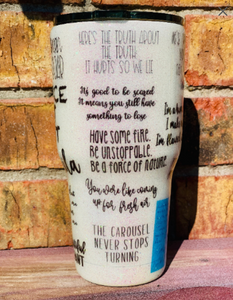 HERE'S THE TRUTH ABOUT
THE TRUTH
IT HURTS SO WE LIE
It's good to be scared
It means you still have
something to lose
Have some fire.
Be unstoppable.
Be a force of nature.
You were like coming
up for fresh air
THE CAROUSEL
NEVER STOPS
TURNING